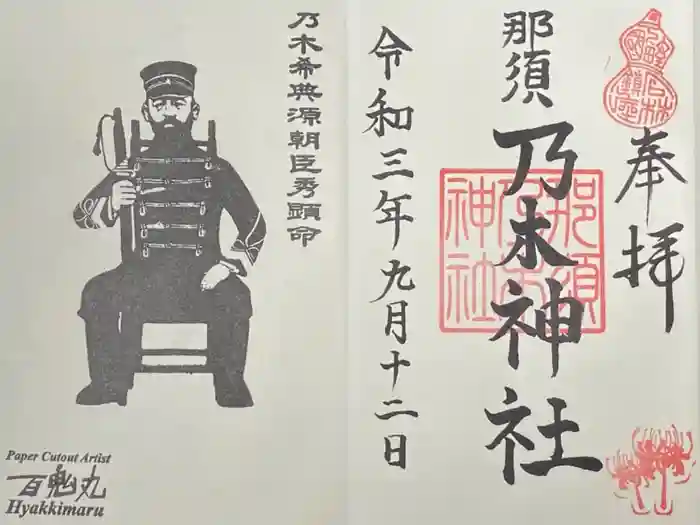 奉拝
那須
乃木神社
那須
乃木
神社
令和三年九月十二日
乃木希典源朝臣秀顕命
Paper Cutout Artist
百鬼丸
Hyakkimaru